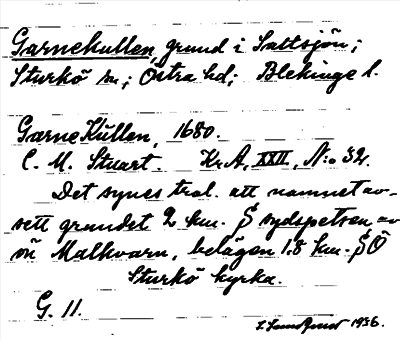 Garnekullen, grund i Saltsjön;
Sturkö sn.; Östra hd; Blekinge l.
Garne Kullen, 1680.
C. M. Stuart. Kr.A, XXII, N:o 32.
Det synes trol. att namnet av-
sett grundet 2 km. S sydspetsen av
ön Malkvarn, belägen 1.8 km. SÖ
Sturkö kyrka.
G. 11.
1936.